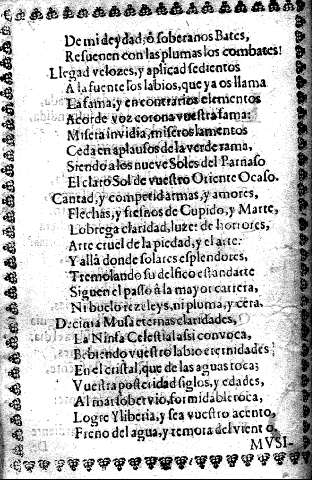 De mi deydad, ò soberanos Bates,
Resuenen con las plumas los combates!
Llegad velozes, y aplicad sedientos
A la fuente los labios, que ya os llama
La fama, y en contrarios elementos
Acorde voz corona vuestra fama:
Misera invidia, miseros lamentos
Ceda en aplausos de la verde rama,
Siendo a los nueve Soles del Parnaso
El claro Sol de vuestro Oriente Ocaso.
Cantad, y competid armas, y amores,
Flechas, y fresnos de Cupido, y Marte,
Lobrega claridad, luze: de horrores,
Arte cruel de la piedad, y el arte:
Y allà donde solares esplendores,
Tremolando su delfico estandarte
Siguen el passo à la mayor carrera,
Ni buelo rezeleys, ni pluma, y cera.
Decima Musa eternas claridades,
La Ninfa Celestial assi convoca,
Bebiendo vuestro labio eternidades
En el cristal, que de las aguas toca;
Vuestra posteridad siglos, y edades,
Al mar sobervio, formidable roca,
Logre Yliberia, y sea vuestro acento,
Freno del agua, y remora del viento.
MVSI-